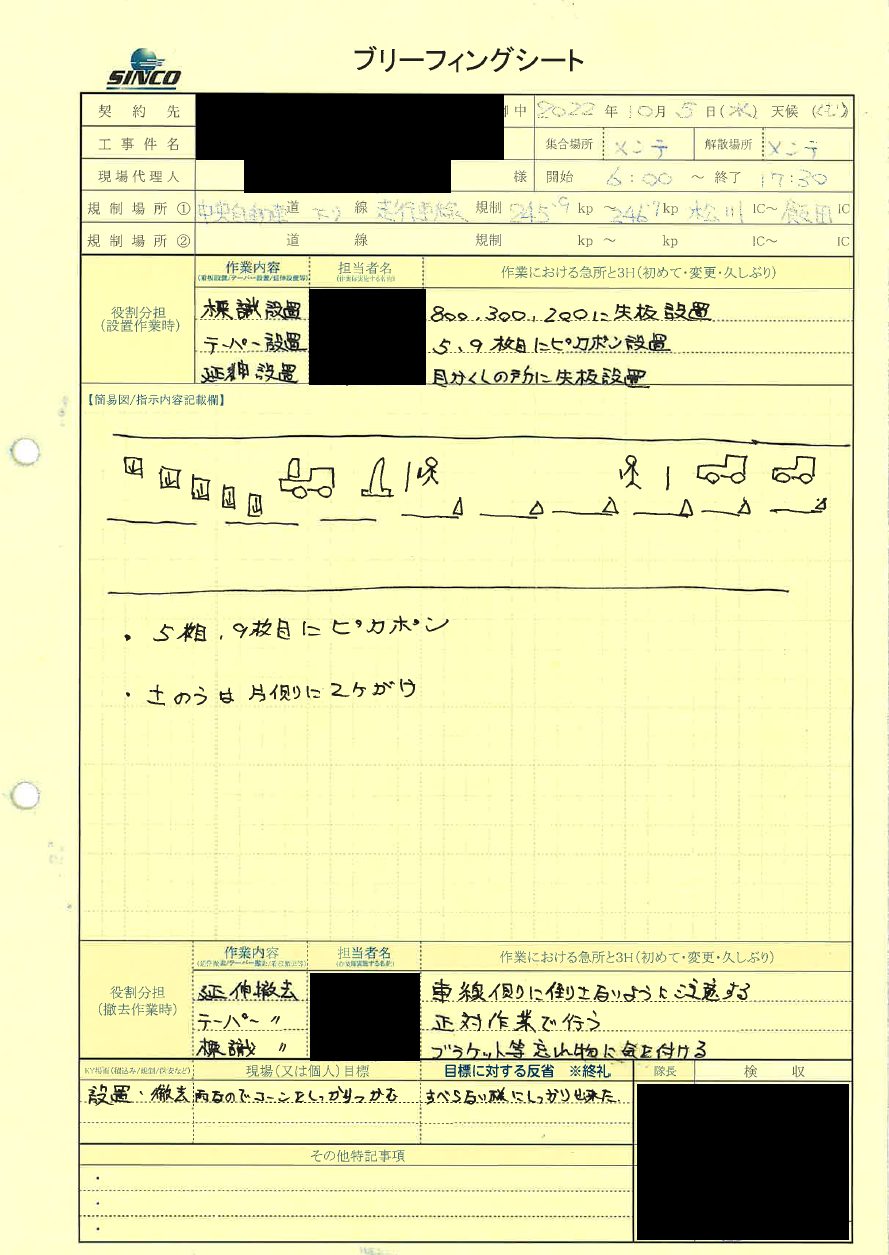 SINCO
ブリーフィングシート
契約先 中 2022年10月5日(水) 天候(くもり)
工事件名 集合場所 メンテ 解散場所 メンテ
現場代理人 様 開始 6:00 ～ 終了 17:30
規制場所① 中央自動車道 下り線 走行車線 規制 245.9kp ～ 246.7kp 松川IC～飯田IC
規制場所② 道 線 規制 kp ～ kp IC～ IC
役割分担
(設置作業時)
作業内容 担当者名 作業における急所と3H(初めて・変更・久しぶり)
標識設置 800.300.200に矢板設置
テーパー設置 5、9枚目にピカポン設置
延伸設置 目かくしの所に矢板設置
【簡易図/指示内容記載欄】
・5枚目、9枚目にピカポン
・土のうは片側に2ケがけ
役割分担
(撤去作業時)
作業内容 担当者名 作業における急所と3H(初めて・変更・久しぶり)
延伸撤去 車線側に倒さないように注意する
テーパー 〃 正対作業で行う
標識 〃 ブラケット等忘れ物に気を付ける
現場(又は個人)目標 目標に対する反省 ※終礼 隊長 検収
設置・撤去 雨なのでコーンをしっかりつかむ すべらない様にしっかり出来た
その他特記事項
・
・
・